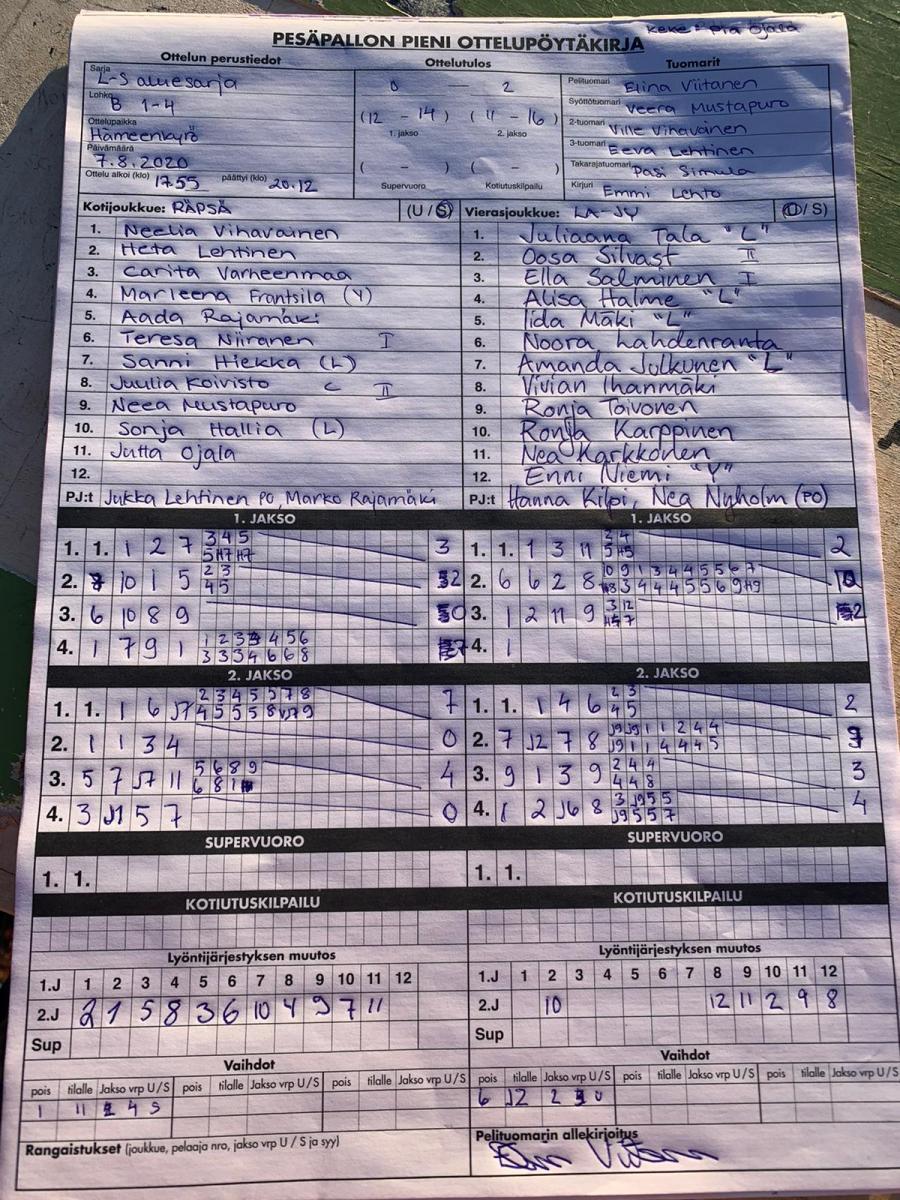 Keke Ojala
PESÄPALLON PIENI OTTELUPÖYTÄKIRJA
Ottelun perustiedot Ottelutulos Tuomarit
Sarja L-S aluesarja
Lohko B 1-4
Ottelupaikka Hämeenkyrö
Päivämäärä 7.8.2020
Ottelu alkoi (klo) 17.55 päättyi (klo) 20.12
0 — 2
(12 - 14) (11 - 16)
1. jakso 2. jakso
( - ) ( - )
Supervuoro Kotiutuskilpailu
Pelituomari Elina Viitanen
Syöttötuomari Veera Mustapuro
2-tuomari Ville Vihavainen
3-tuomari Eeva Lehtinen
Takarajatuomari Pasi Simula
Kirjuri Emmi Lehto
Kotijoukkue: RÄPSÄ (U / S)
1. Neelia Vihavainen
2. Heta Lehtinen
3. Carita Varheenmaa
4. Marleena Frantsila (Y)
5. Aada Rajamäki
6. Teresa Niiranen I
7. Sanni Hiekka (L)
8. Juulia Koivisto C II
9. Neea Mustapuro
10. Sonja Hallia (L)
11. Jutta Ojala
12.
PJ:t Jukka Lehtinen PO, Marko Rajamäki
Vierasjoukkue: LA-JY (U / S)
1. Juliaana Tala "L"
2. Oosa Silvast II
3. Ella Salminen I
4. Alisa Halme "L"
5. Iida Mäki "L"
6. Noora Lahdenranta
7. Amanda Julkunen "L"
8. Vivian Ihanmäki
9. Ronja Toivonen
10. Ronja Karppinen
11. Nea Karkkonen
12. Enni Niemi "Y"
PJ:t Hanna Kilpi, Nea Nyholm (PO)
1. JAKSO
1. 1. 1 2 7 3 4 5 3
5 H7 H7
2. 10 1 5 2 3 2
4 5
3. 6 10 8 9 0
4. 1 7 9 1 1 2 3 3 4 5 6 7
3 3 3 4 6 6 8
1. JAKSO
1. 1. 1 3 11 3 4 2
5 H5
2. 6 6 2 8 10 9 1 3 4 4 5 5 6 7 10
H8 3 4 4 4 5 5 6 9 H9
3. 1 2 11 9 3 12 2
H5 7
4. 1
2. JAKSO
1. 1. 1 6 J7 2 3 4 5 5 7 8 7
4 5 5 5 8 J7 9
2. 1 1 3 4 0
3. 5 7 J7 11 5 6 8 9 4
6 8 1
4. 3 J1 5 7 0
2. JAKSO
1. 1. 1 4 6 2 3 2
4 5
2. 7 J2 7 8 J9 J9 1 1 2 4 4
J9 1 1 4 4 4 5
3. 9 1 3 9 2 4 4 3
4 4 8
4. 1 2 J6 8 3 J9 5 5 4
J9 5 5 7
SUPERVUORO SUPERVUORO
1. 1. 1. 1.
KOTIUTUSKILPAILU KOTIUTUSKILPAILU
Lyöntijärjestyksen muutos
1.J 1 2 3 4 5 6 7 8 9 10 11 12
2.J 2 1 5 8 3 6 10 4 9 7 11
Sup
Lyöntijärjestyksen muutos
1.J 1 2 3 4 5 6 7 8 9 10 11 12
2.J 10 12 11 2 9 8
Sup
Vaihdot
pois tilalle Jakso vrp U/S pois tilalle Jakso vrp U/S pois tilalle Jakso vrp U/S
1 11 4 S
Vaihdot
pois tilalle Jakso vrp U/S pois tilalle Jakso vrp U/S pois tilalle Jakso vrp U/S
6 J2 2 U
Rangaistukset (joukkue, pelaaja nro, jakso vrp U / S ja syy)
Pelituomarin allekirjoitus